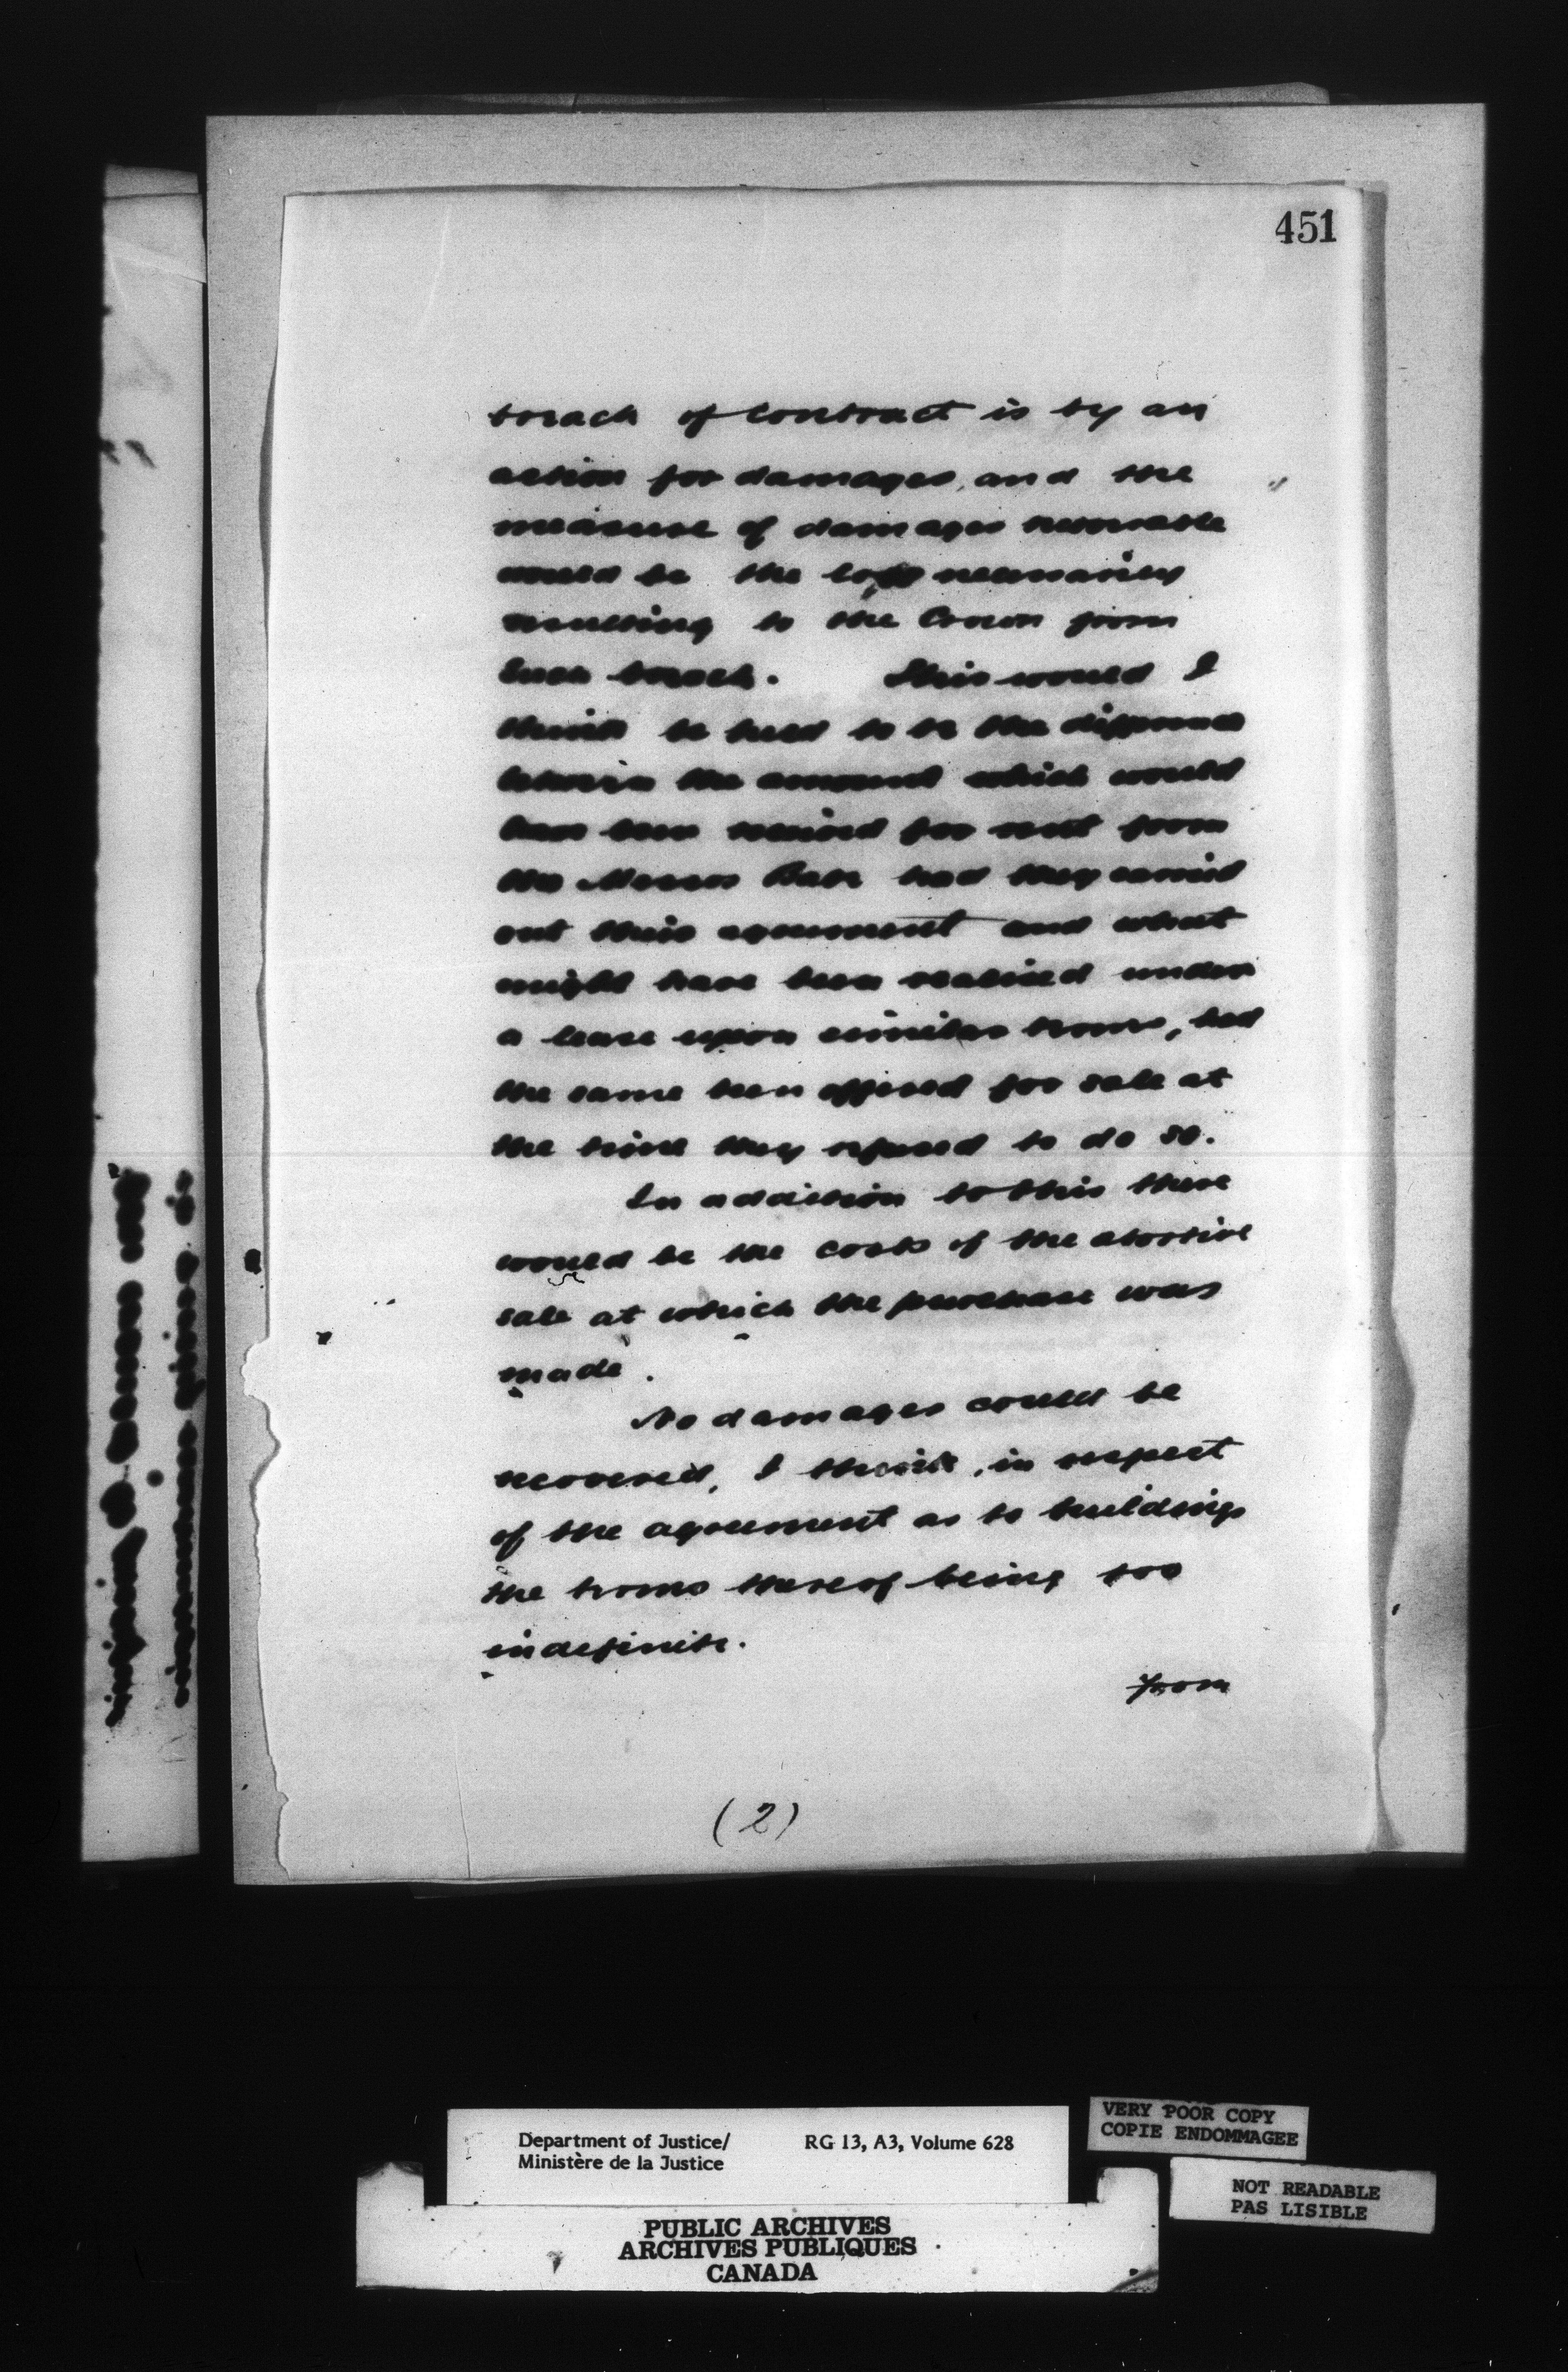 451
breach of contract is by an
action for damages, and the
measure of damages recoverable
would be the loss necessarily
resulting to the Crown from
such breach. This would I
think be held to be the difference
between the amount which would
have been received for rent from
the Messrs had they carried
out their agreement and what
might have been realized under
a lease upon similar terms, had
the same been offered for sale at
the time they refused to do so.
In addition to this there
would be the costs of the abortive
sale at which the purchase was
made.
No damages could be
recovered, I think, in respect
of the agreement as to buildings
the terms thereof being too
indefinite.
From
(2)
Department of Justice/ RG 13, A3, Volume 628
Ministère de la Justice
VERY POOR COPY
COPIE ENDOMMAGEE
NOT READABLE
PAS LISIBLE
PUBLIC ARCHIVES
ARCHIVES PUBLIQUES
CANADA